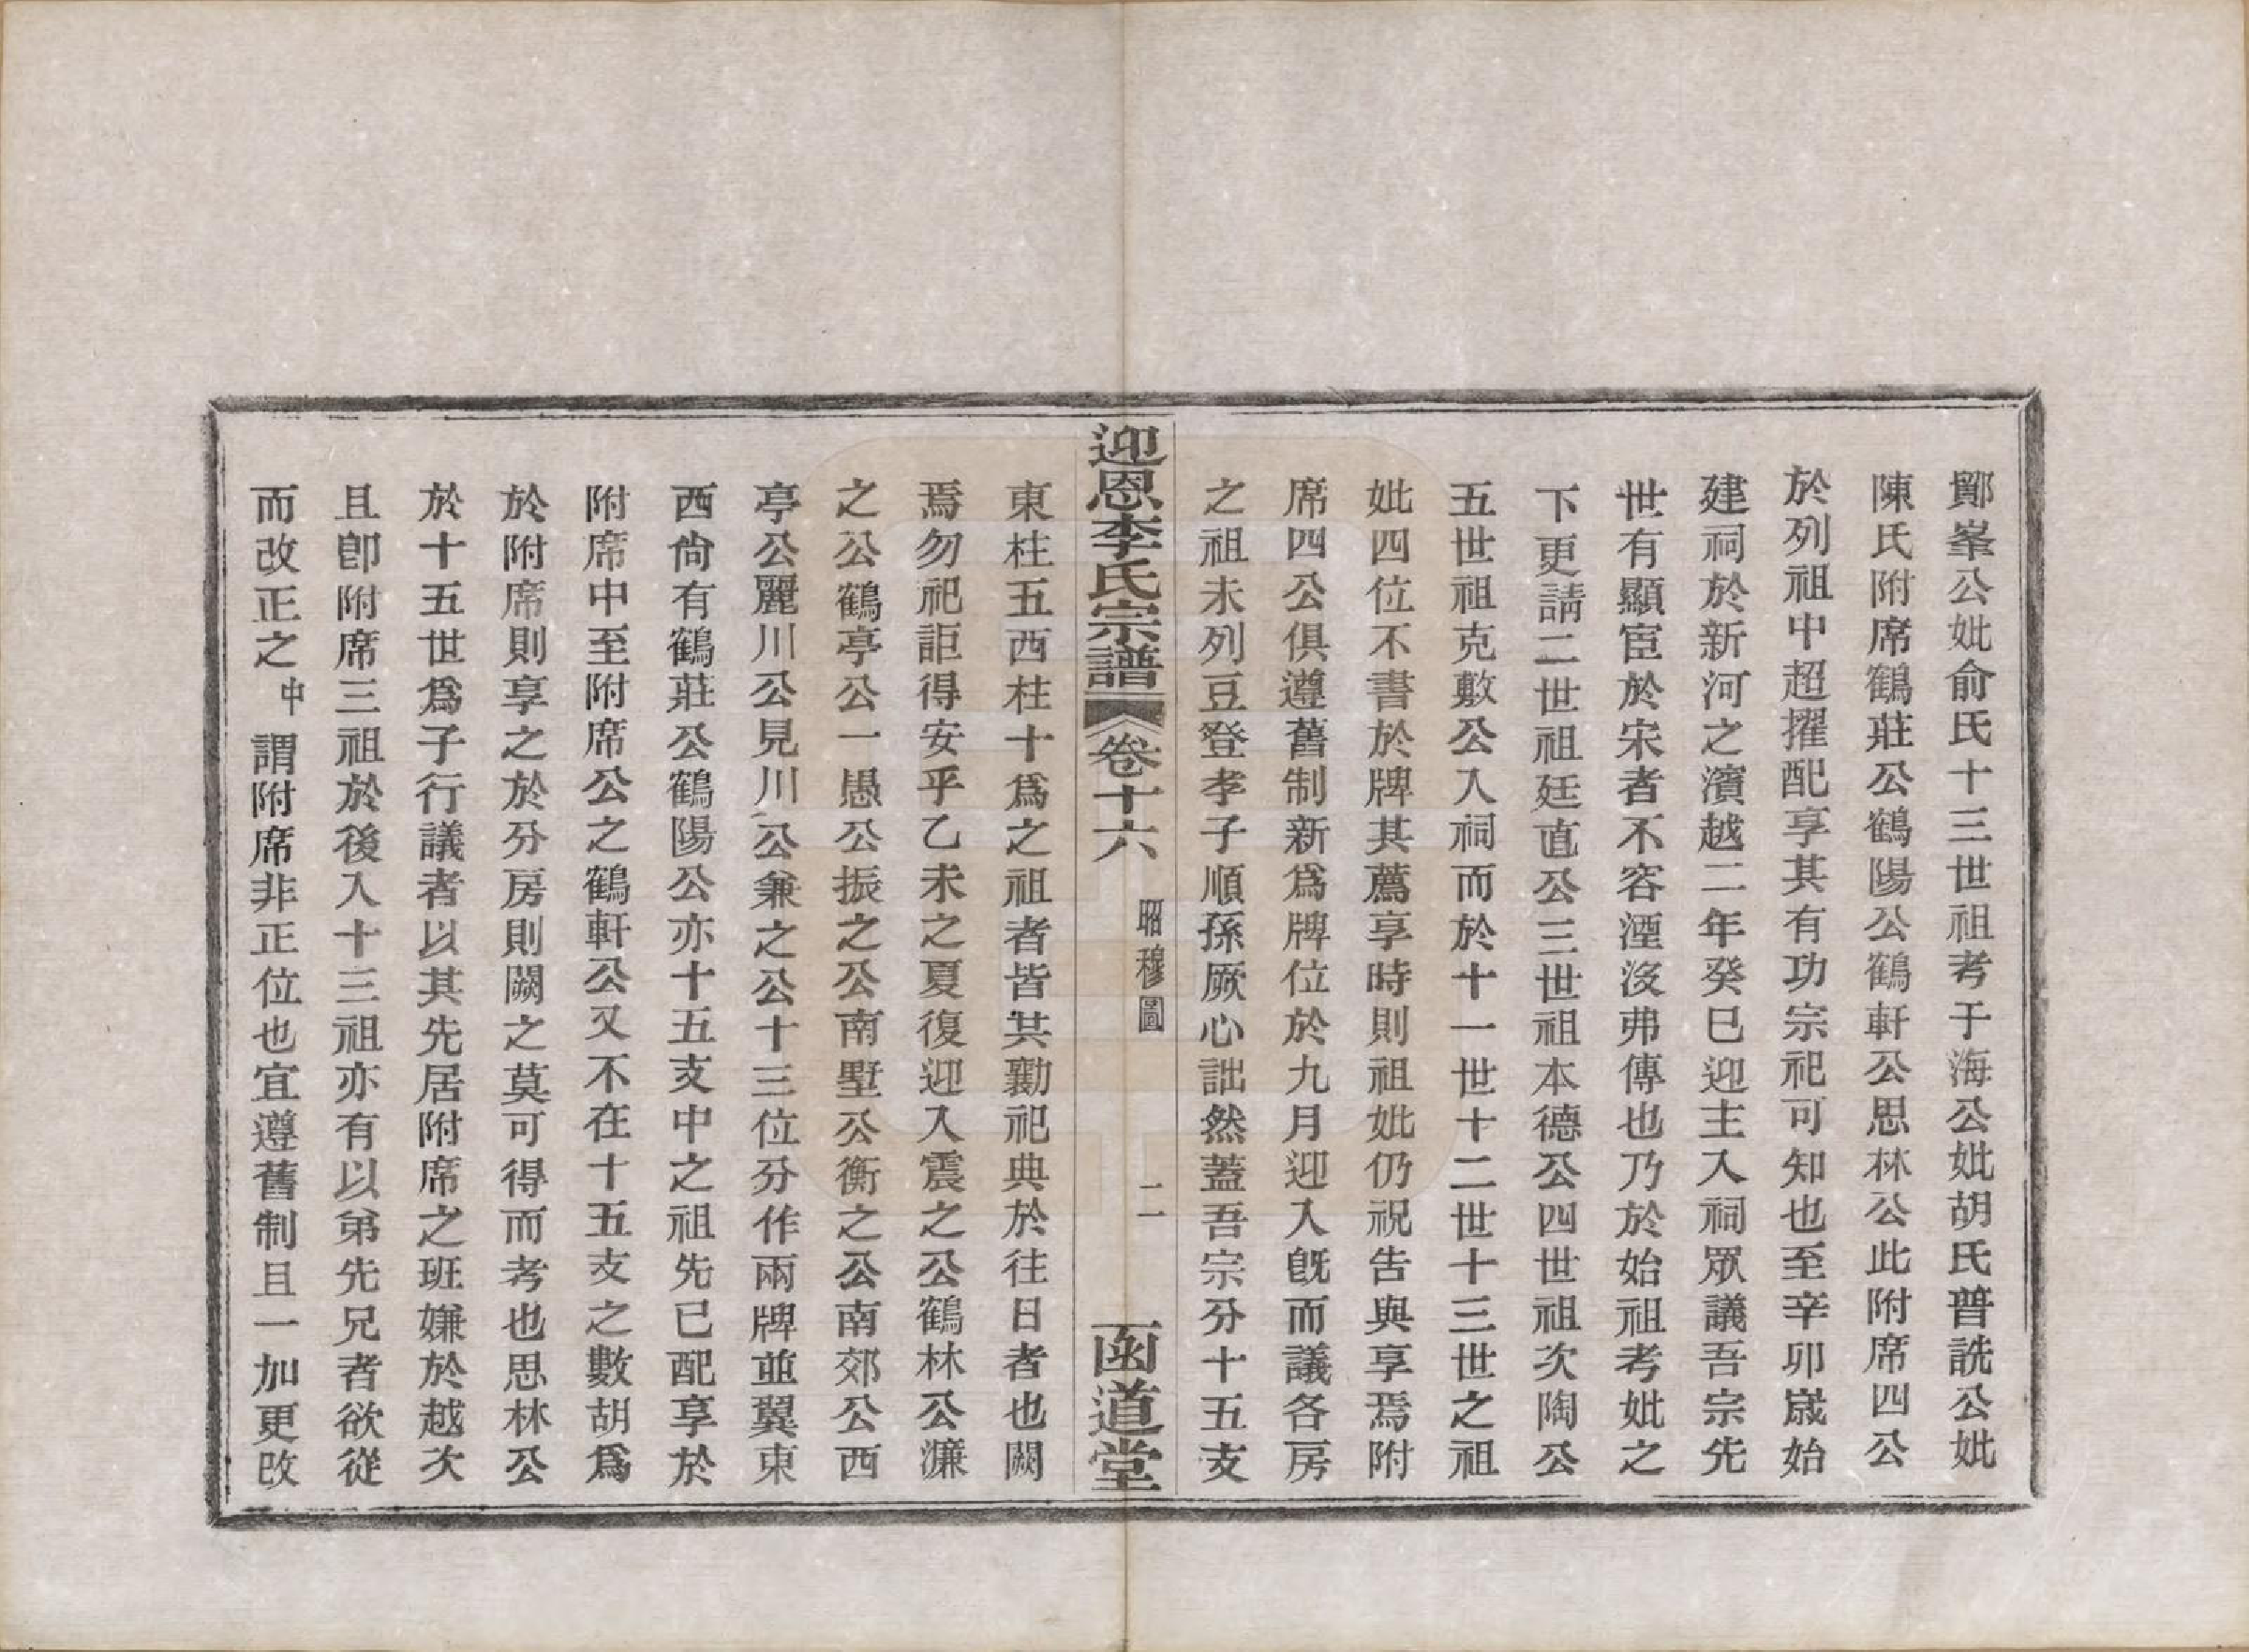 鄮峯公妣俞氏十三世祖考于海公妣胡氏普詵公妣
陳氏附席鶴莊公鶴陽公鶴軒公思林公此附席四公
於列祖中超擢配享其有功宗祀可知也至辛卯歲始
建祠於新河之濱越二年癸巳迎主入祠眾議吾宗先
世有顯宦於宋者不容湮沒弗傳也乃於始祖考妣之
下更請二世祖廷直公三世祖本德公四世祖次陶公
五世祖克敷公入祠而於十一世十二世十三世之祖
妣四位不書於牌其薦享時則祖妣仍祝告與享焉附
席四公俱遵舊制新爲牌位於九月迎入旣而議各房
之祖未列豆登孝子順孫厥心詘然蓋吾宗分十五支
迎恩李氏宗譜 卷十六 昭穆圖 二 函道堂
東柱五西柱十爲之祖者皆其勷祀典於往日者也闕
焉勿祀詎得安乎乙未之夏復迎入震之公鶴林公濂
之公鶴亭公一愚公振之公南墅公衡之公南郊公西
亭公麗川公見川公兼之公十三位分作兩牌並翼東
西尙有鶴莊公鶴陽公亦十五支中之祖先已配享於
附席中至附席公之鶴軒公又不在十五支之數胡爲
於附席則享之於分房則闕之莫可得而考也思林公
於十五世爲子行議者以其先居附席之班嫌於越次
且卽附席三祖於後入十三祖亦有以弟先兄者欲從
而改正之中謂附席非正位也宜遵舊制且一加更改